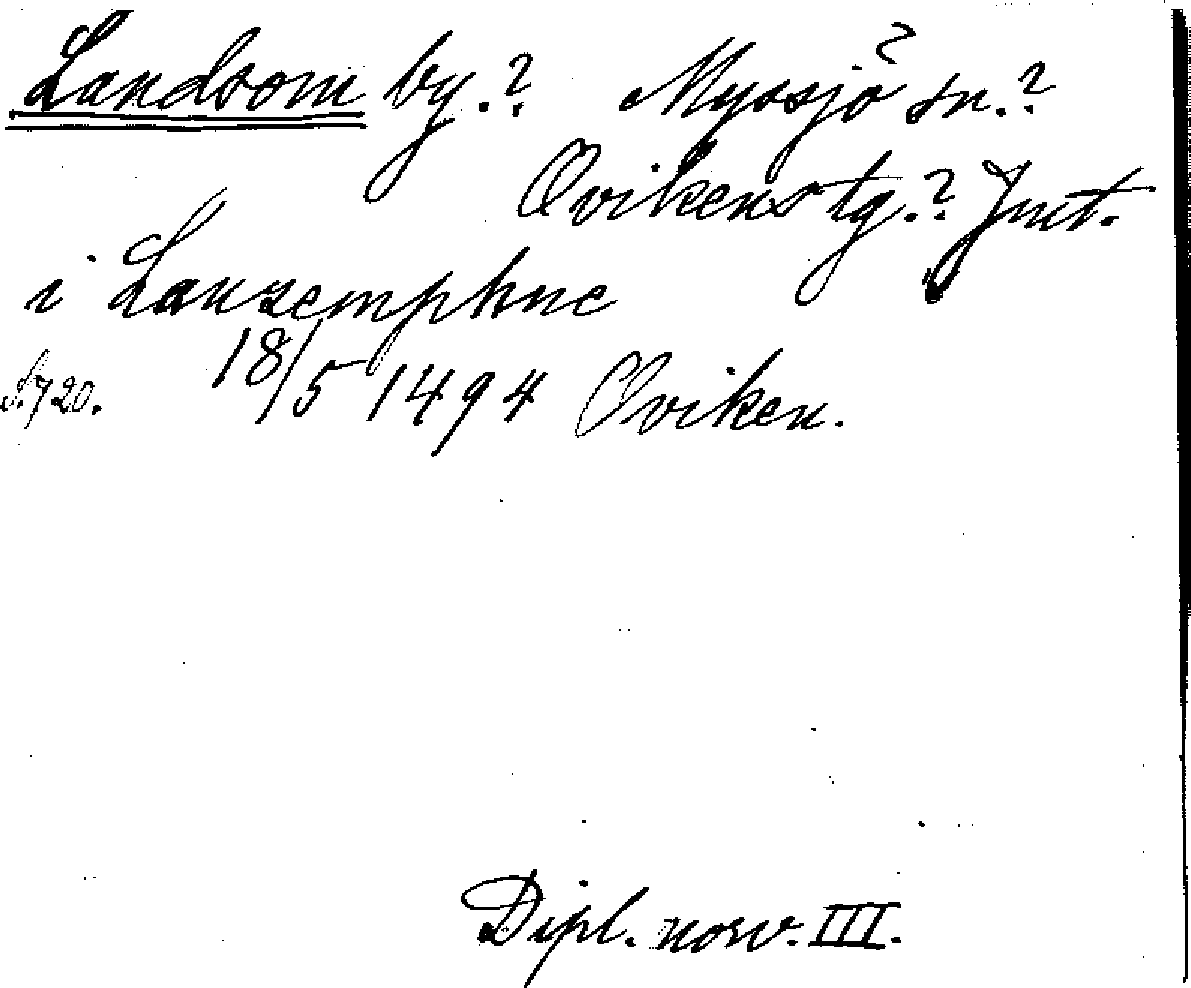 Landsom by.? Myssjö sn.?
Ovikens tg.? Jmt.
i Lanzemphne
S. 720. 18/5 1494 Oviken.
Dipl. norv. III.